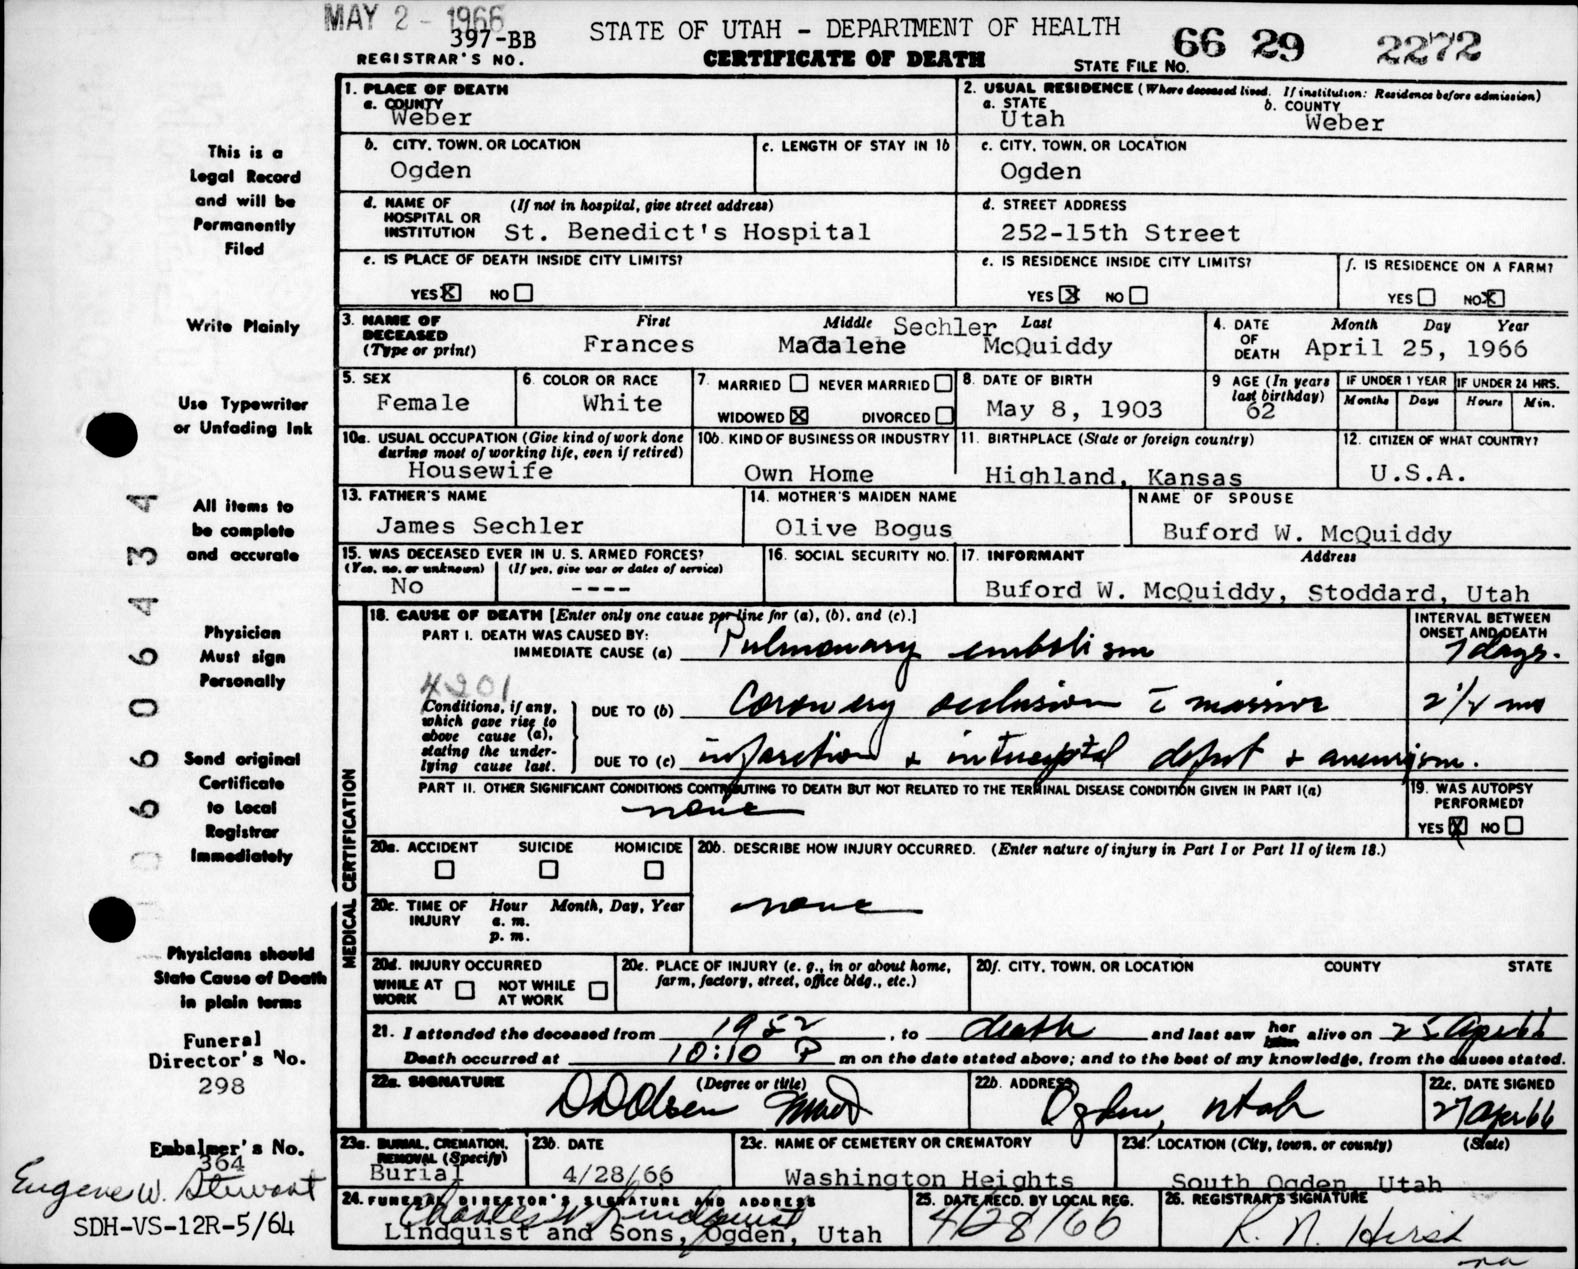 MAY 2 - 1966
397-BB
REGISTRAR'S NO.
STATE OF UTAH - DEPARTMENT OF HEALTH
CERTIFICATE OF DEATH
STATE FILE NO. 66 29 2272
This is a
Legal Record
and will be
Permanently
Filed
Write Plainly
Use Typewriter
or Unfading Ink
All items to
be complete
and accurate
Physician
Must sign
Personally
Send original
Certificate
to Local
Registrar
Immediately
Physicians should
State Cause of Death
in plain terms
Funeral
Director's No.
298
Embalmer's No.
364
Eugene W. Stewart
SDH-VS-12R-5/64
0660643 4
1. PLACE OF DEATH
a. COUNTY
Weber
2. USUAL RESIDENCE (Where deceased lived. If institution: Residence before admission)
a. STATE b. COUNTY
Utah Weber
b. CITY, TOWN, OR LOCATION
Ogden
c. LENGTH OF STAY IN 1b
c. CITY, TOWN, OR LOCATION
Ogden
d. NAME OF HOSPITAL OR INSTITUTION (If not in hospital, give street address)
St. Benedict's Hospital
d. STREET ADDRESS
252-15th Street
e. IS PLACE OF DEATH INSIDE CITY LIMITS?
YES X NO
e. IS RESIDENCE INSIDE CITY LIMITS?
YES X NO
f. IS RESIDENCE ON A FARM?
YES NO X
3. NAME OF DECEASED (Type or print) First Middle Last
Sechler
Frances Madalene McQuiddy
4. DATE OF DEATH Month Day Year
April 25, 1966
5. SEX
Female
6. COLOR OR RACE
White
7. MARRIED NEVER MARRIED
WIDOWED X DIVORCED
8. DATE OF BIRTH
May 8, 1903
9 AGE (In years last birthday)
62
IF UNDER 1 YEAR
Months Days
IF UNDER 24 HRS.
Hours Min.
10a. USUAL OCCUPATION (Give kind of work done during most of working life, even if retired)
Housewife
10b. KIND OF BUSINESS OR INDUSTRY
Own Home
11. BIRTHPLACE (State or foreign country)
Highland, Kansas
12. CITIZEN OF WHAT COUNTRY?
U.S.A.
13. FATHER'S NAME
James Sechler
14. MOTHER'S MAIDEN NAME
Olive Bogus
NAME OF SPOUSE
Buford W. McQuiddy
15. WAS DECEASED EVER IN U. S. ARMED FORCES?
(Yes, no, or unknown) (If yes, give war or dates of service)
No ----
16. SOCIAL SECURITY NO.
17. INFORMANT Address
Buford W. McQuiddy, Stoddard, Utah
MEDICAL CERTIFICATION
18. CAUSE OF DEATH [Enter only one cause per line for (a), (b), and (c).]
PART I. DEATH WAS CAUSED BY:
IMMEDIATE CAUSE (a) Pulmonary embolism
INTERVAL BETWEEN ONSET AND DEATH
7 days.
4201
Conditions, if any, which gave rise to above cause (a), stating the underlying cause last.
DUE TO (b) Coronary occlusion c̄ massive
2 1/2 mo
DUE TO (c) infarction + defect + aneurism.
PART II. OTHER SIGNIFICANT CONDITIONS CONTRIBUTING TO DEATH BUT NOT RELATED TO THE TERMINAL DISEASE CONDITION GIVEN IN PART I(a)
none
19. WAS AUTOPSY PERFORMED?
YES X NO
20a. ACCIDENT SUICIDE HOMICIDE
20b. DESCRIBE HOW INJURY OCCURRED. (Enter nature of injury in Part I or Part II of item 18.)
none
20c. TIME OF INJURY Hour Month, Day, Year
a. m.
p. m.
20d. INJURY OCCURRED
WHILE AT WORK NOT WHILE AT WORK
20e. PLACE OF INJURY (e. g., in or about home, farm, factory, street, office bldg., etc.)
20f. CITY, TOWN, OR LOCATION COUNTY STATE
21. I attended the deceased from 1952, to death and last saw her alive on 25 Apr 66
Death occurred at 10:10 P m on the date stated above; and to the best of my knowledge, from the causes stated.
22a. SIGNATURE (Degree or title)
D D Olsen
22b. ADDRESS
Ogden, Utah
22c. DATE SIGNED
27 Apr 66
23a. BURIAL, CREMATION, REMOVAL (Specify)
Burial
23b. DATE
4/28/66
23c. NAME OF CEMETERY OR CREMATORY
Washington Heights
23d. LOCATION (City, town, or county) (State)
South Ogden, Utah
24. FUNERAL DIRECTOR'S SIGNATURE AND ADDRESS
Charles W Lindquist
Lindquist and Sons, Ogden, Utah
25. DATE RECD. BY LOCAL REG.
4/28/66
26. REGISTRAR'S SIGNATURE
R. N. Hirst